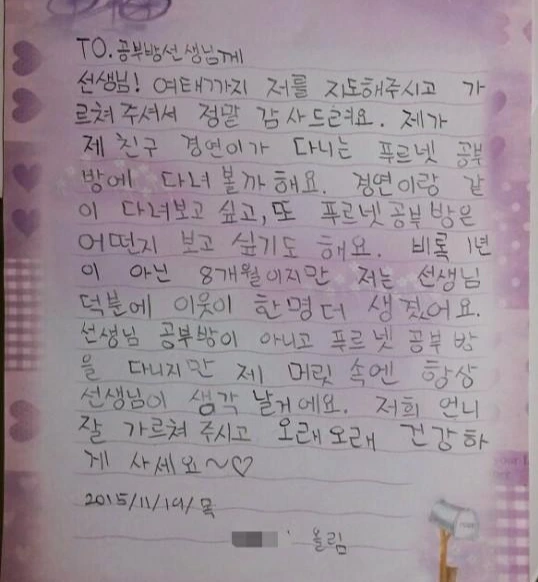 TO. 공부방선생님께
선생님! 여태까지 저를 지도해주시고 가
르쳐 주셔서 정말 감사드려요. 제가
제 친구 경연이가 다니는 푸르넷 공부
방에 다녀 볼까 해요. 경연이랑 같
이 다녀보고 싶고, 또 푸르넷공부방은
어떤지 보고 싶기도 해요. 비록 1년
이 아닌 8개월이지만 저는 선생님
덕분에 이웃이 한명 더 생겼어요.
선생님 공부방이 아니고 푸르넷 공부방
을 다니지만 제 머릿 속엔 항상
선생님이 생각 날거에요. 저희 언니
잘 가르쳐 주시고 오래오래 건강하
게 사세요~♡
2015/11/19/목
올림